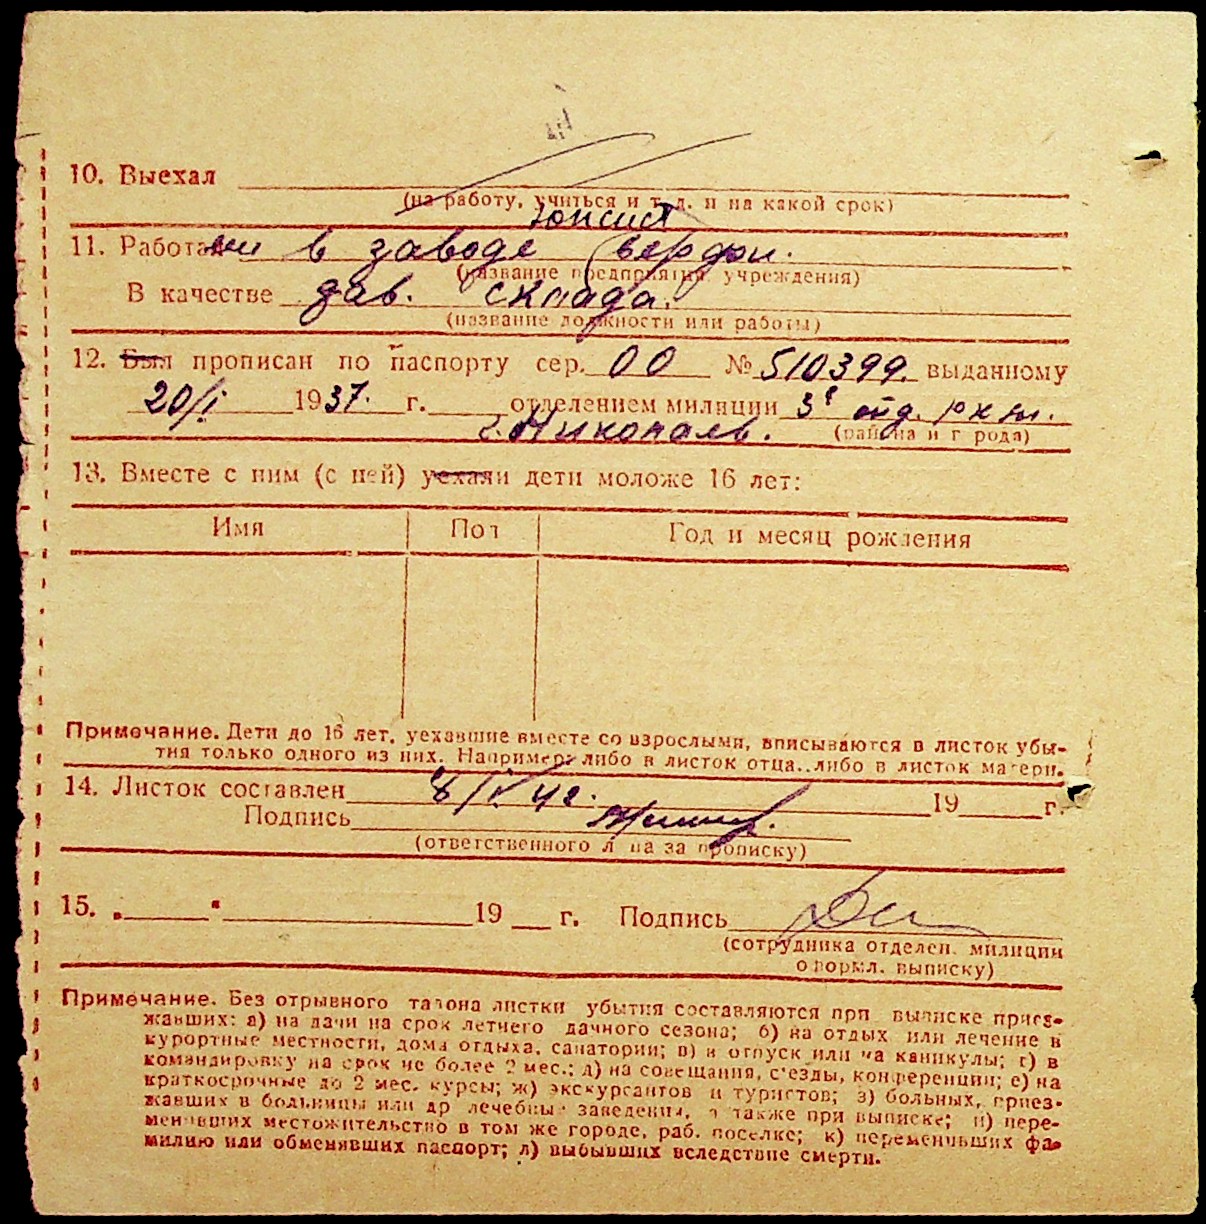 10. Выехал
(на работу, учиться и т. д. и на какой срок)
11. Работает в заводе
(название предприятия учреждения)
В качестве зав. склада.
(название должности или работы)
12. Был прописан по паспорту сер. 00 № 510399. выданному
20/I 1937. г. отделением милиции 3е отд. ркм.
г. Никополь. (района и города)
13. Вместе с ним (с ней) уехали дети моложе 16 лет:
Имя Пол Год и месяц рождения
Примечание. Дети до 16 лет, уехавшие вместе со взрослыми, вписываются в листок убы-
тия только одного из них. Например: либо в листок отца, либо в листок матери.
14. Листок составлен 8/IV 42. 19 г.
Подпись
(ответственного лица за прописку)
15. „ " 19 г. Подпись
(сотрудника отделен. милиции
оформл. выписку)
Примечание. Без отрывного талона листки убытия составляются при выписке приез-
жавших: а) на дачи на срок летнего дачного сезона; б) на отдых или лечение в
курортные местности, дома отдыха, санатории; в) в отпуск или на каникулы; г) в
командировку на срок не более 2 мес.; д) на совещания, с'езды, конференции; е) на
краткосрочные до 2 мес. курсы; ж) экскурсантов и туристов; з) больных, приез-
жавших в больницы или др лечебные заведения, а также при выписке; и) пере-
менивших местожительство в том же городе, раб. поселке; к) переменивших фа-
милию или обменявших паспорт; л) выбывших вследствие смерти.